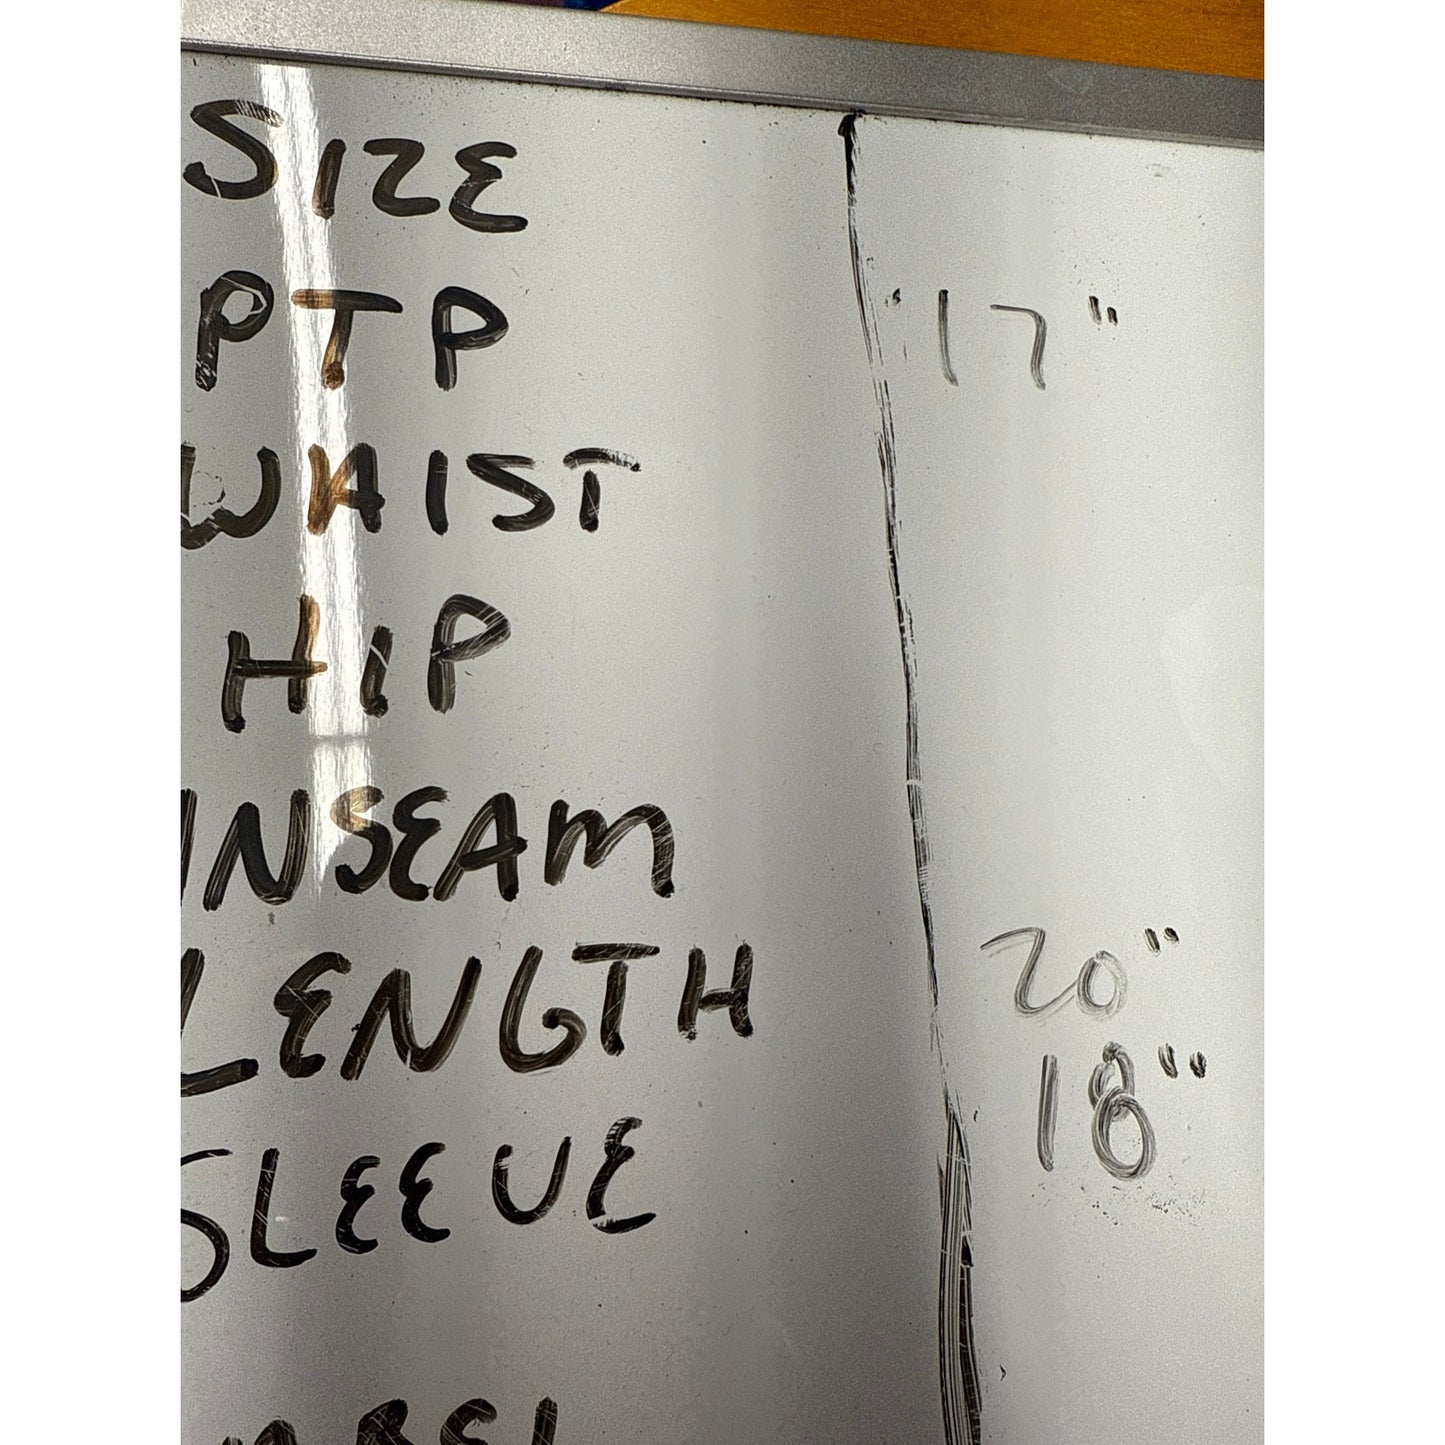 SIZE
PTP 17"
WAIST
HIP
INSEAM
LENGTH 20"
SLEEVE 18"